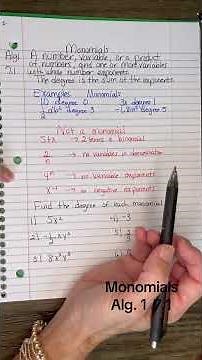 Monomials
Alg. A number, variable, or a product
7.1 of numbers, and one or more variables
with whole number exponents.
The degree is the sum of the exponents.
Examples Monomials
10 degree 0 3x degree 1
½ab² degree 3
Not a monomial
5+x → 2 terms a binomial
2/n → no variables in denominator
4ⁿ → no variable exponents
x⁻¹ → no negative exponents
Find the degree of each monomial
1) 5x² 4) -3
2) -½xy³ 5)
3)
Monomials
Alg. 1 7.1